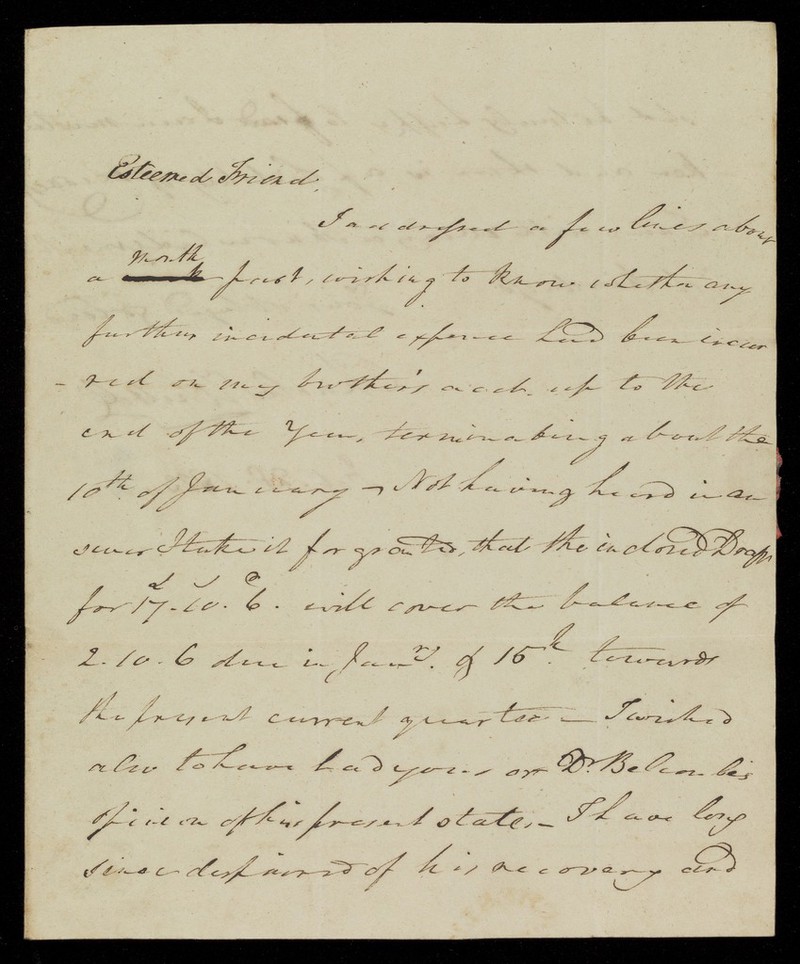 Esteemed Friend,
I addressed a few lines about
a month past, wishing to know whether any
further incidental expence had been incur
- red on my brother's acct. up to the
end of the Year, terminating about the
10th. of January - Not having heard in an
swer I take it for granted, that the inclosed Draft
for 17.10.6. will cover the balance of
2.10.6 due in Janry. & 15 towards
the present current quarter - I wished
also to have had yours or Dr. Belcombes
opinion of his present state, - I have long
since despaired of his recovery and